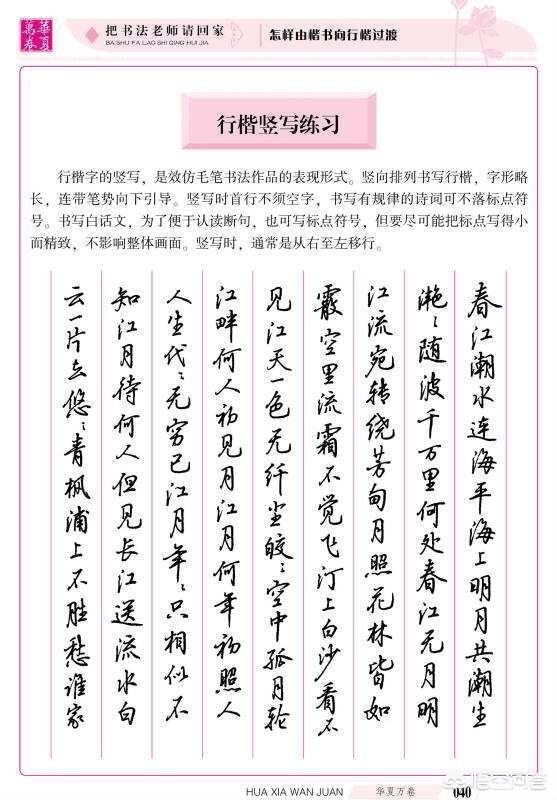 華夏
萬卷
把书法老师请回家
BA SHU FA LAO SHI QING HUI JIA
怎样由楷书向行楷过渡
行楷竖写练习
行楷字的竖写，是效仿毛笔书法作品的表现形式。竖向排列书写行楷，字形略
长，连带笔势向下引导。竖写时首行不须空字，书写有规律的诗词可不落标点符
号。书写白话文，为了便于认读断句，也可写标点符号，但要尽可能把标点写得小
而精致，不影响整体画面。竖写时，通常是从右至左移行。
春江潮水连海平海上明月共潮生
滟〻随波千万里何处春江无月明
江流宛转绕芳甸月照花林皆如
霰空里流霜不觉飞汀上白沙看不
见江天一色无纤尘皎〻空中孤月轮
江畔何人初见月江月何年初照人
人生代〻无穷已江月年〻只相似不
知江月待何人但见长江送流水白
云一片去悠〻青枫浦上不胜愁谁家
HUA XIA WAN JUAN
华夏万卷
040
悟空问答